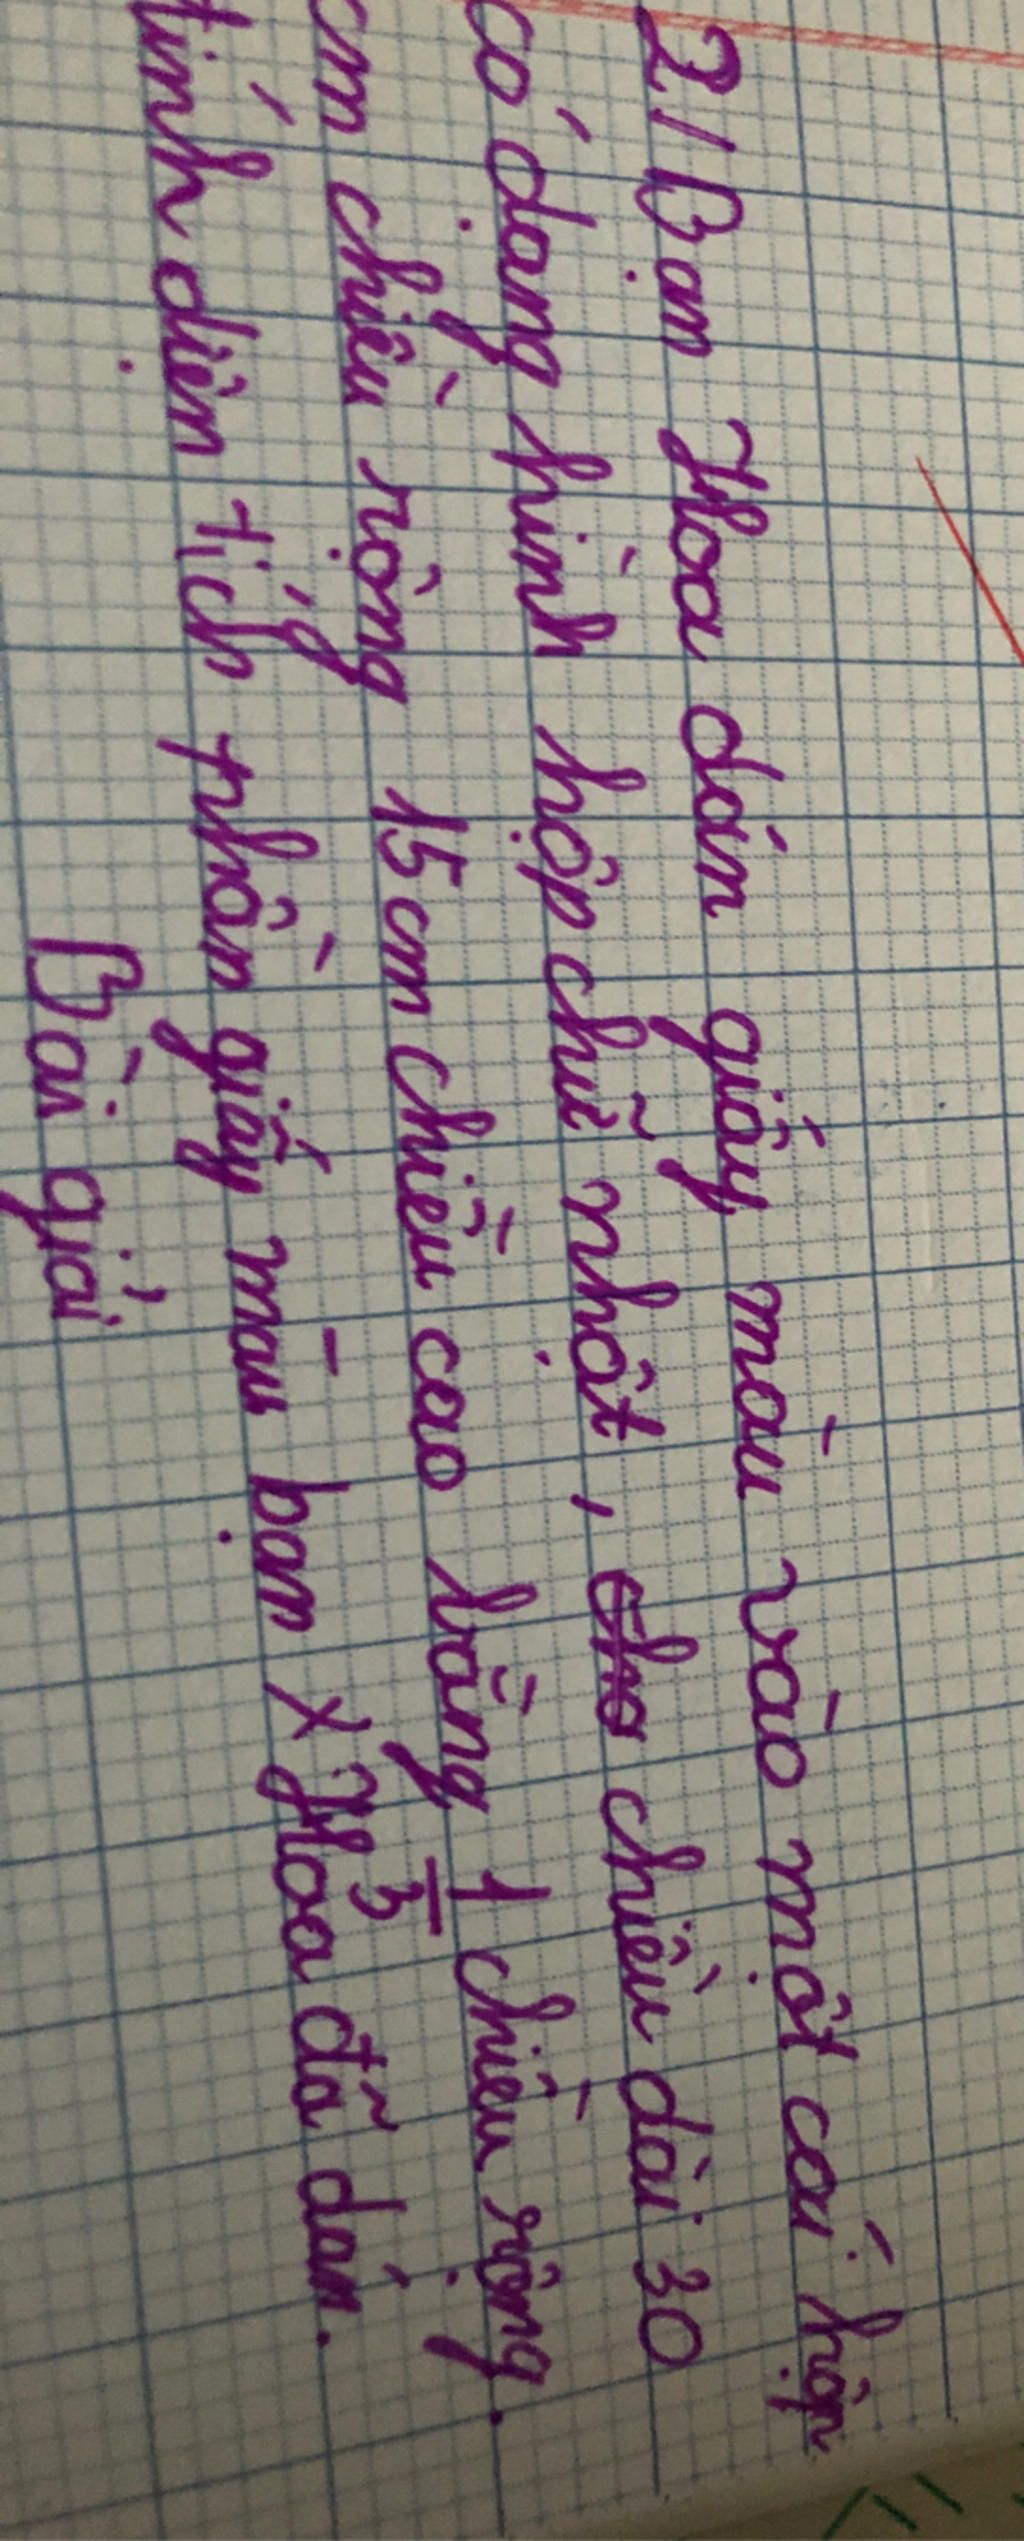 2/ Bạn Hoa dán giấy màu vào một cái hộp
có dạng hình hộp chữ nhật, cho chiều dài 30
cm chiều rộng 15 cm chiều cao bằng 1/3 chiều rộng.
tính diện tích phần giấy màu bạn x Hoa đã dán.
Bài giải